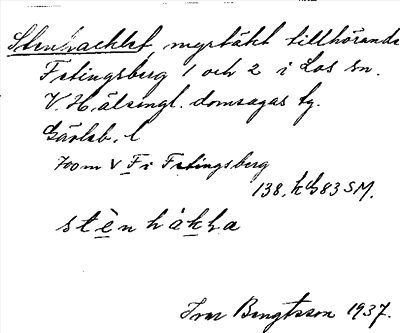 Stenhacklet, myrtäkt tillhörande
Fåtingsberg 1 och 2 i Los sn.
V. Hälsingl. domsagas tg.
Gävleb. l
700 m V F i Fåtingsberg
138, h 683 SM.
stènhákka
Ivar Bengtsson 1937.